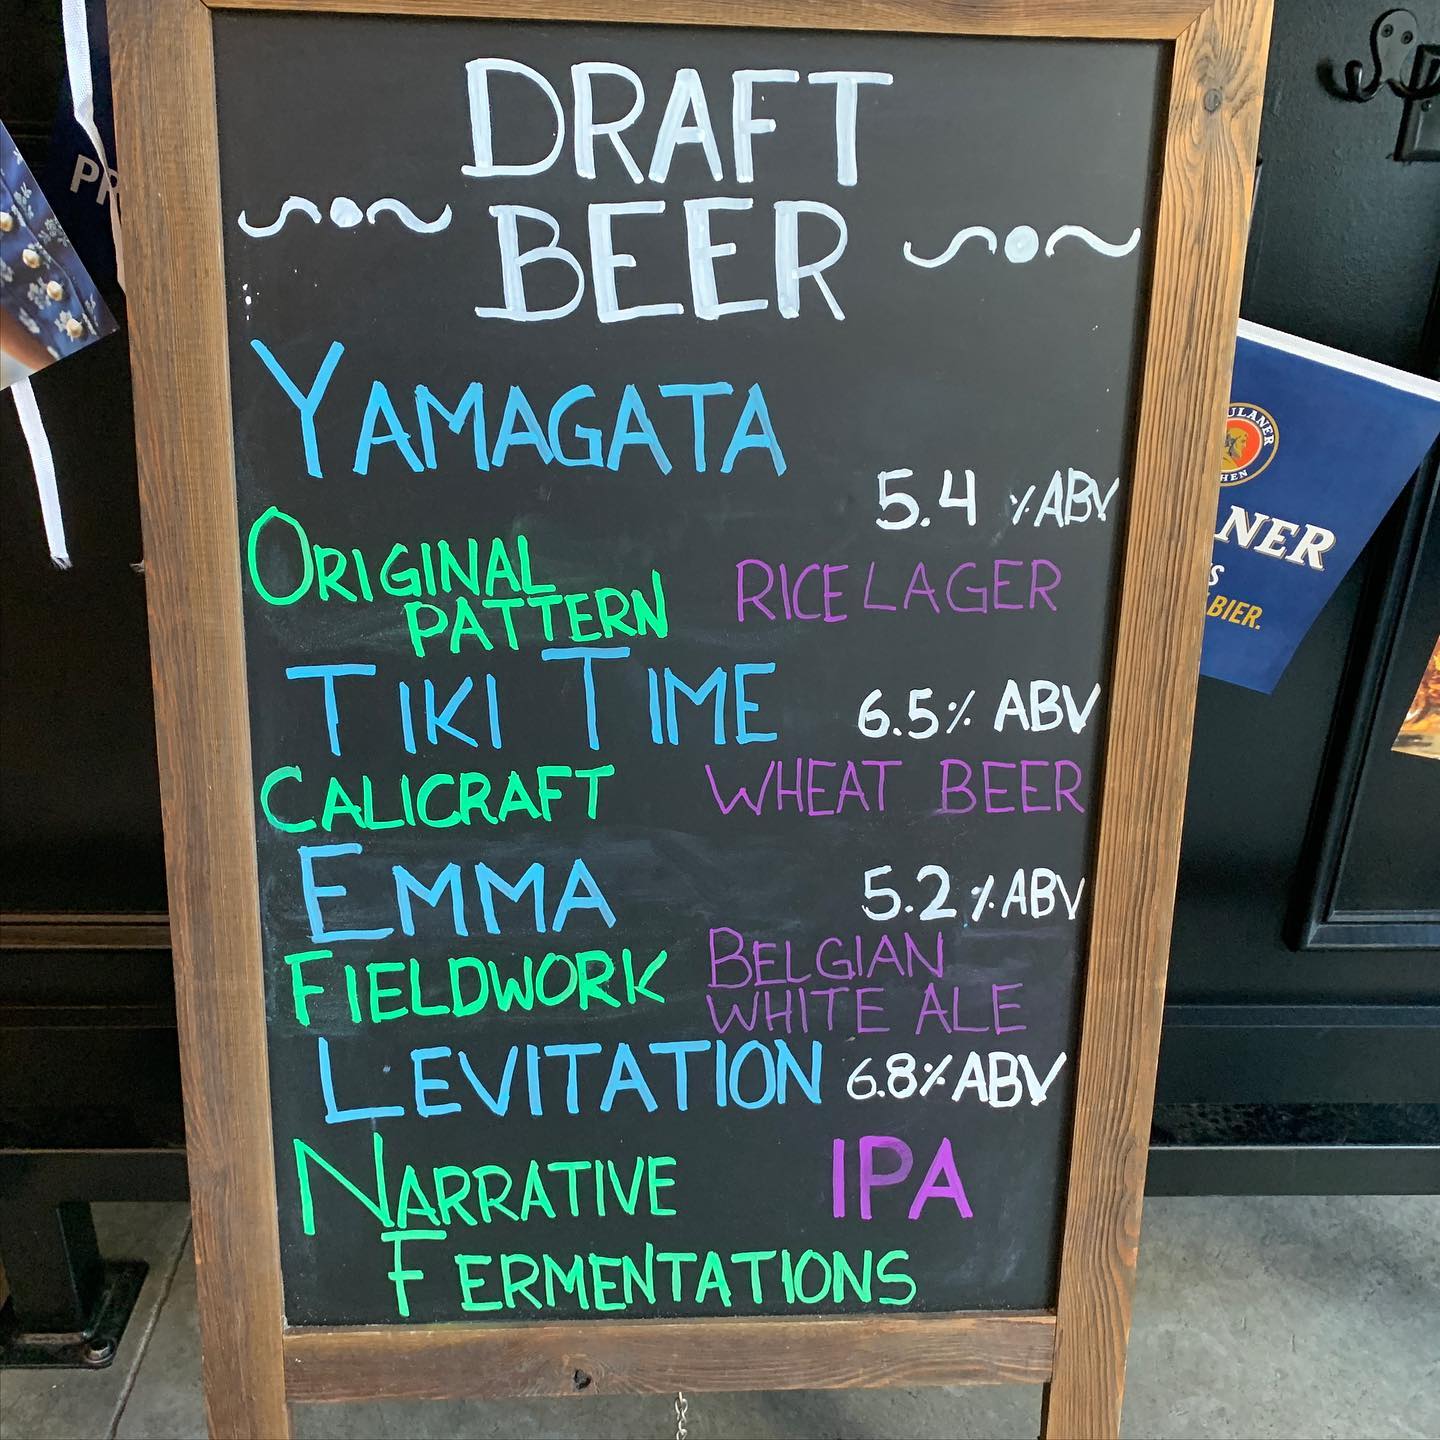 DRAFT
BEER
YAMAGATA
5.4 % ABV
ORIGINAL
PATTERN
RICE LAGER
TIKI TIME
6.5% ABV
CALICRAFT
WHEAT BEER
EMMA
5.2% ABV
FIELDWORK
BELGIAN
WHITE ALE
LEVITATION
6.8% ABV
NARRATIVE
IPA
FERMENTATIONS
PR
ULANER
HEN
NER
S
BIER.